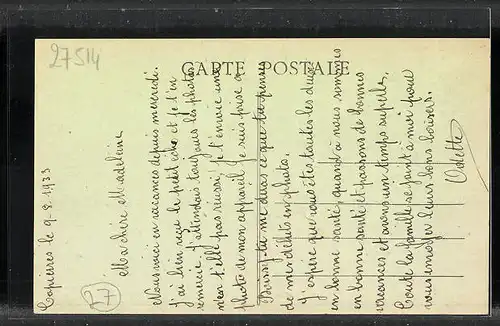 27514
CARTE POSTALE
Capierres le 9-8-1933
Ma chère Madeleine
Nous voici en vacances depuis mercredi.
J'ai bien reçu le petit colis et je t'en
remercie. J'attendais toujours les photos
mais elle pas réussi, je t'envoie une
photo de mon appareil. Je suis prise à
Boussy. tu me diras ce que tu penses
de mes débuts en photo.
J'espère que vous êtes toutes les deux
en bonne santé, quand à nous, sommes
en bonne santé et passons de bonnes
vacances et avons un temps superbe,
Toute la famille se joint à moi pour
vous envoyer leurs bons baisers.
Odette
27